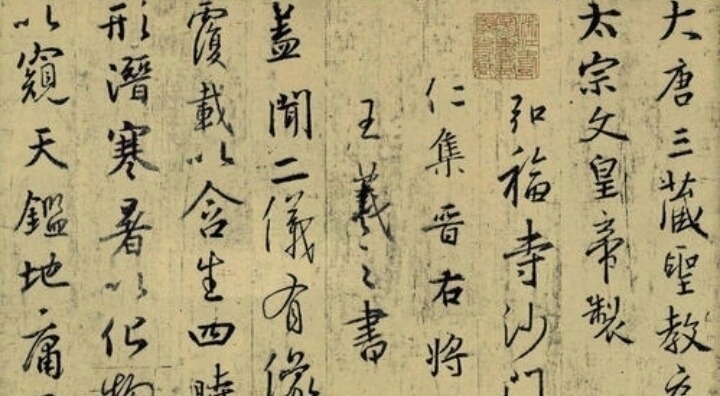 大唐三藏聖教序
太宗文皇帝製
弘福寺沙門
仁集晉右將
王羲之書
蓋聞二儀有像
覆載以含生四時
形潛寒暑以化物
以窺天鑑地庸